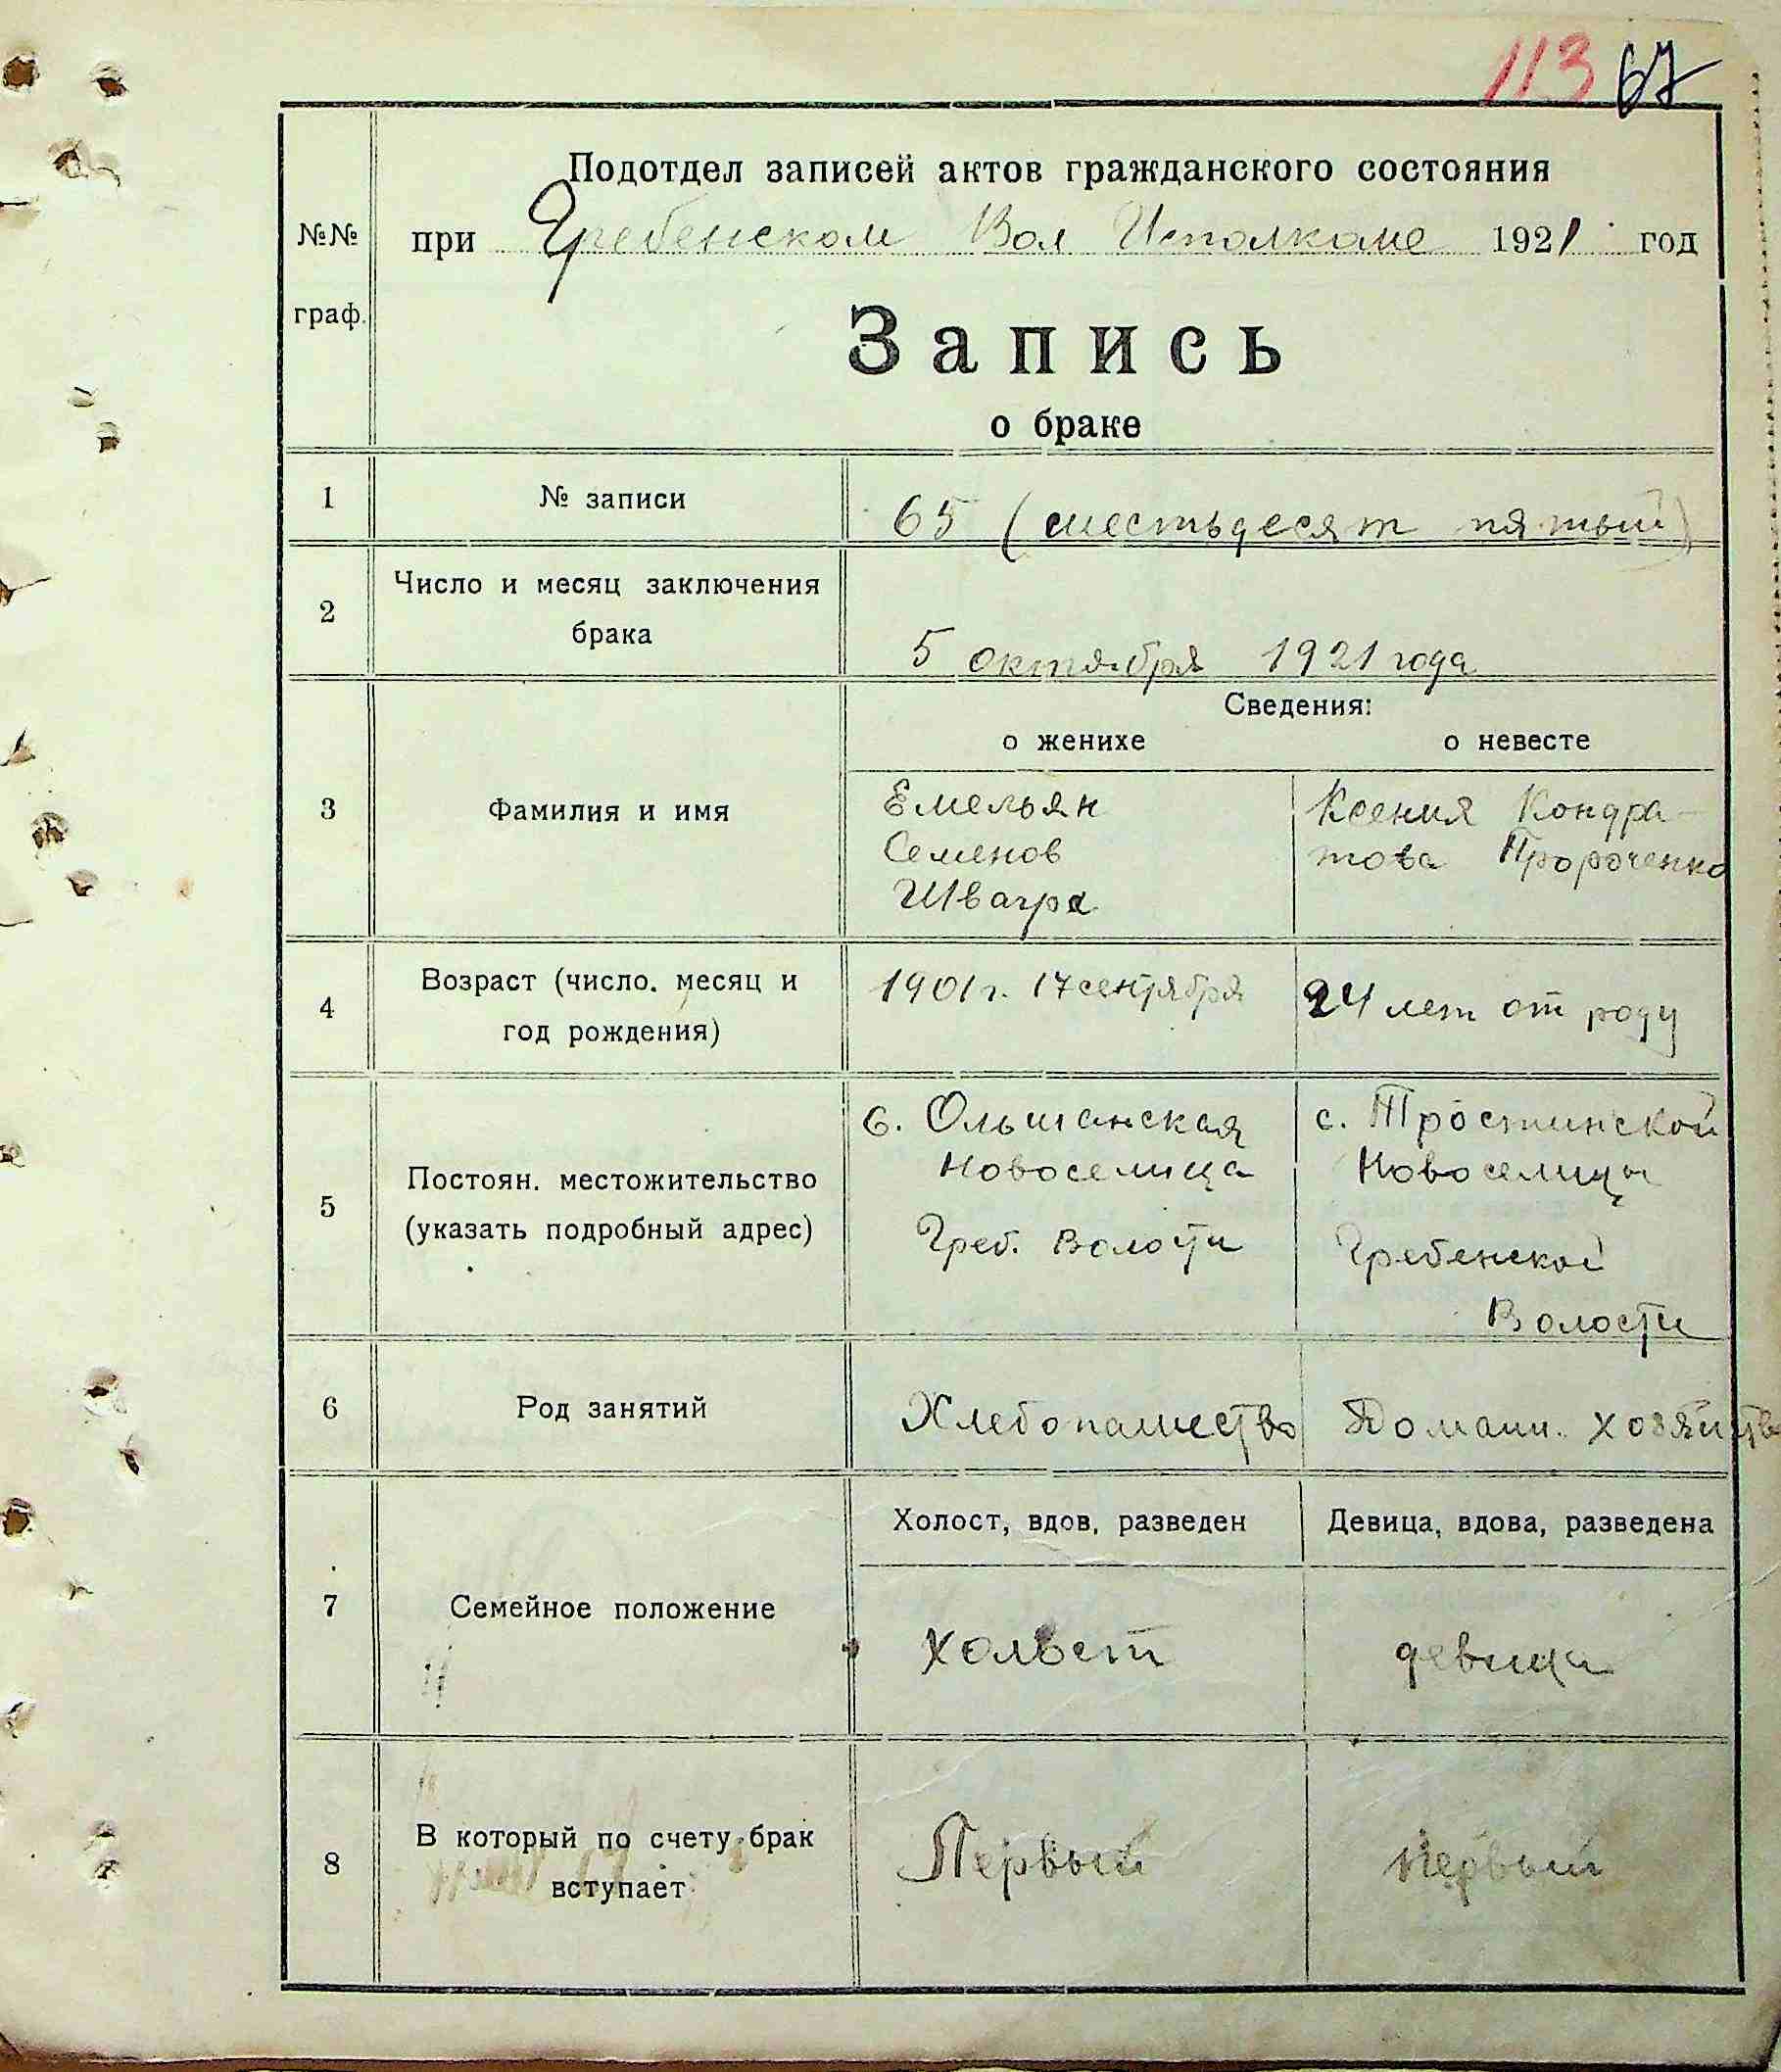 113 67
Подотдел записей актов гражданского состояния
№№ при Гребенском Вол Исполкоме 1921 год
граф.
Запись
о браке
1 № записи 65 (шестьдесят пятый)
2 Число и месяц заключения
брака
5 октября 1921 года
Сведения:
о женихе о невесте
3 Фамилия и имя
Емельян
Семенов
Швагра
Ксения Кондра-
това Пророченко
4 Возраст (число. месяц и
год рождения)
1901 г. 17 сентября
24 лет от роду
5 Постоян. местожительство
(указать подробный адрес)
с. Ольшанская
Новоселица
Греб. Волости
с. Тростинской
Новоселицы
Гребенской
Волости
6 Род занятий Хлебопашество Домашн. хозяйство
Холост, вдов, разведен Девица, вдова, разведена
7 Семейное положение холост девица
8 В который по счету брак
вступает
Первый первый